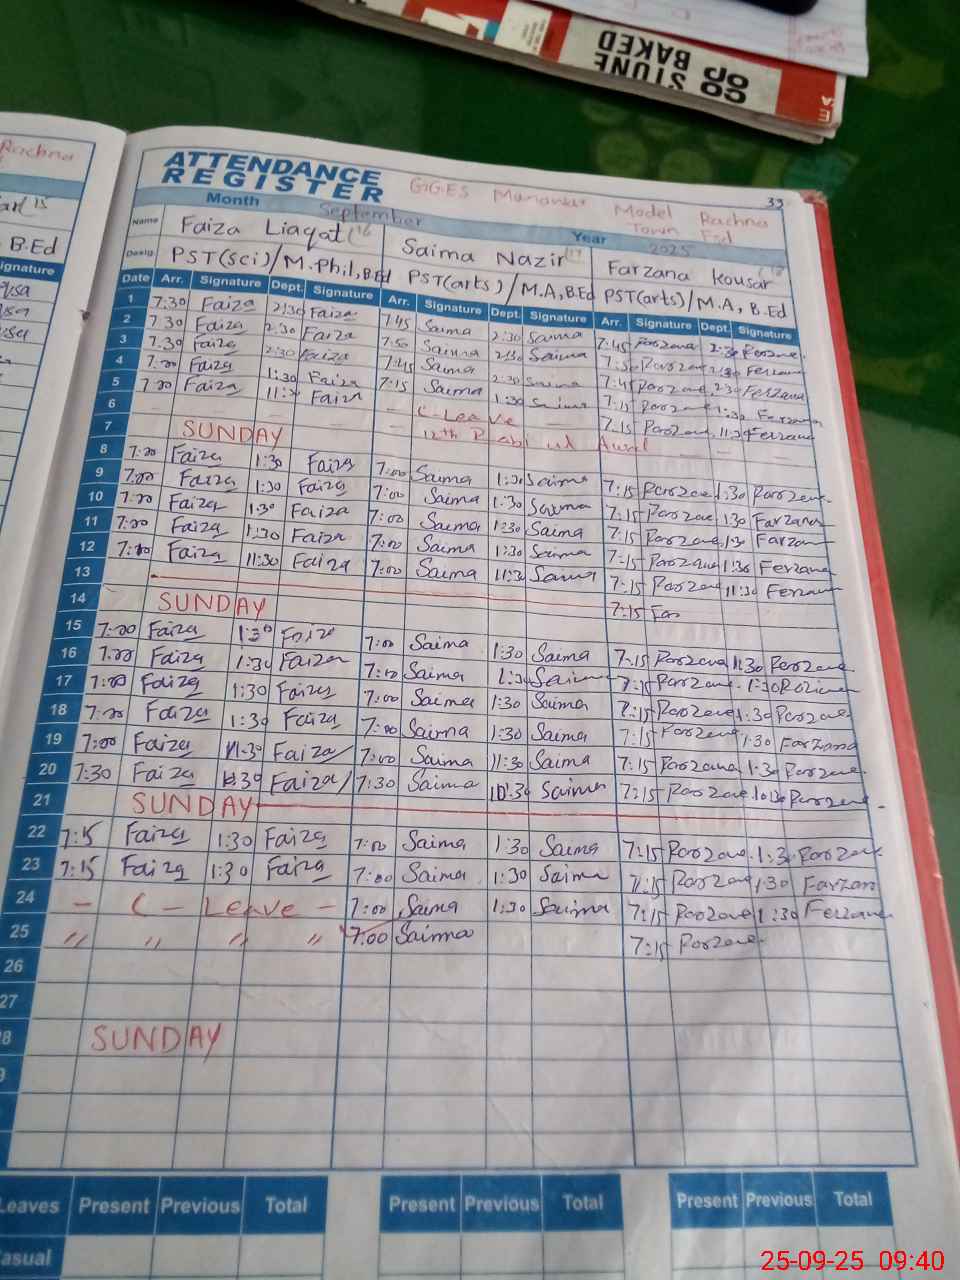 STONE
BAKED
CO
OP
Rachna
B.Ed
ignature
ATTENDANCE
REGISTER
GGES Model Rachna
Town Fsd
33
Month September Year 2025
Name Faiza Liaqat 16 Saima Nazir 17 Farzana Kousar 18
Desig. PST(Sci)/M.Phil,B.Ed PST(arts)/M.A,B.Ed PST(arts)/M.A, B.Ed
Date Arr. Signature Dept. Signature Arr. Signature Dept. Signature Arr. Signature Dept. Signature
1 7:30 Faiza 2:30 Faiza 7:45 Saima 2:30 Saima 7:45 2:30
2 7:30 Faiza 2:30 Faiza 7:50 Saima 2:30 Saima 7:50 2:30
3 7:30 Faiza 2:30 Faiza 7:45 Saima 2:30 Saima 7:45 2:30 Ferzana
4 7:00 Faiza 1:30 Faiza 7:15 Saima 1:30 Saima 7:15 1:30 Farzana
5 7:00 Faiza 11:30 Faiza - C Leave - 7:15 11:30 Ferzana
6 12th Rabi ul Awal
7 SUNDAY
8 7:00 Faiza 1:30 Faiza 7:00 Saima 1:30 Saima 7:15 1:30
9 7:00 Faiza 1:30 Faiza 7:00 Saima 1:30 Saima 7:15 1:30 Farzana
10 7:00 Faiza 1:30 Faiza 7:00 Saima 1:30 Saima 7:15 1:30 Farzana
11 7:00 Faiza 1:30 Faiza 7:00 Saima 1:30 Saima 7:15 1:30 Ferzana
12 7:00 Faiza 11:30 Faiza 7:00 Saima 11:30 Saima 7:15 11:30 Ferzana
13 7:15 Far
14 SUNDAY
15 7:00 Faiza 1:30 Faiza 7:00 Saima 1:30 Saima 7:15 1:30
16 7:00 Faiza 1:30 Faiza 7:00 Saima 1:30 Saima 7:15 1:30
17 7:00 Faiza 1:30 Faiza 7:00 Saima 1:30 Saima 7:15 1:30
18 7:00 Faiza 1:30 Faiza 7:00 Saima 1:30 Saima 7:15 1:30 Farzana
19 7:00 Faiza 11:30 Faiza 7:00 Saima 11:30 Saima 7:15 1:30
20 7:30 Faiza Faiza 7:30 Saima 10:30 Saima 7:15 10:30
21 SUNDAY
22 7:15 Faiza 1:30 Faiza 7:00 Saima 1:30 Saima 7:15 1:30
23 7:15 Faiza 1:30 Faiza 7:00 Saima 1:30 Saima 7:15 1:30 Farzana
24 - C - Leave - 7:00 Saima 1:30 Saima 7:15 1:30 Ferzana
25 〃 〃 〃 〃 7:00 Saima 7:15
26
27
8 SUNDAY
9
Leaves Present Previous Total Present Previous Total Present Previous Total
asual
25-09-25 09:40